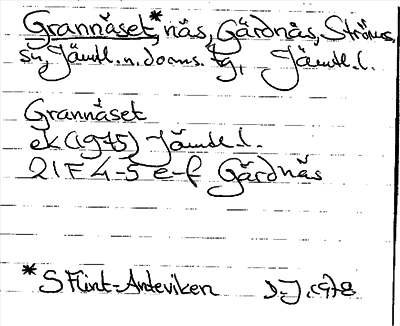 Grannäset,* näs, Gärdnäs, Ströms
sn, Jämtl. n. doms. tg, Jämtl. l.
Grannäset
ek (1975) Jämtl. l.
21 F 4-5 e-f Gärdnäs
* S Flint-Andeviken D.J. 1978